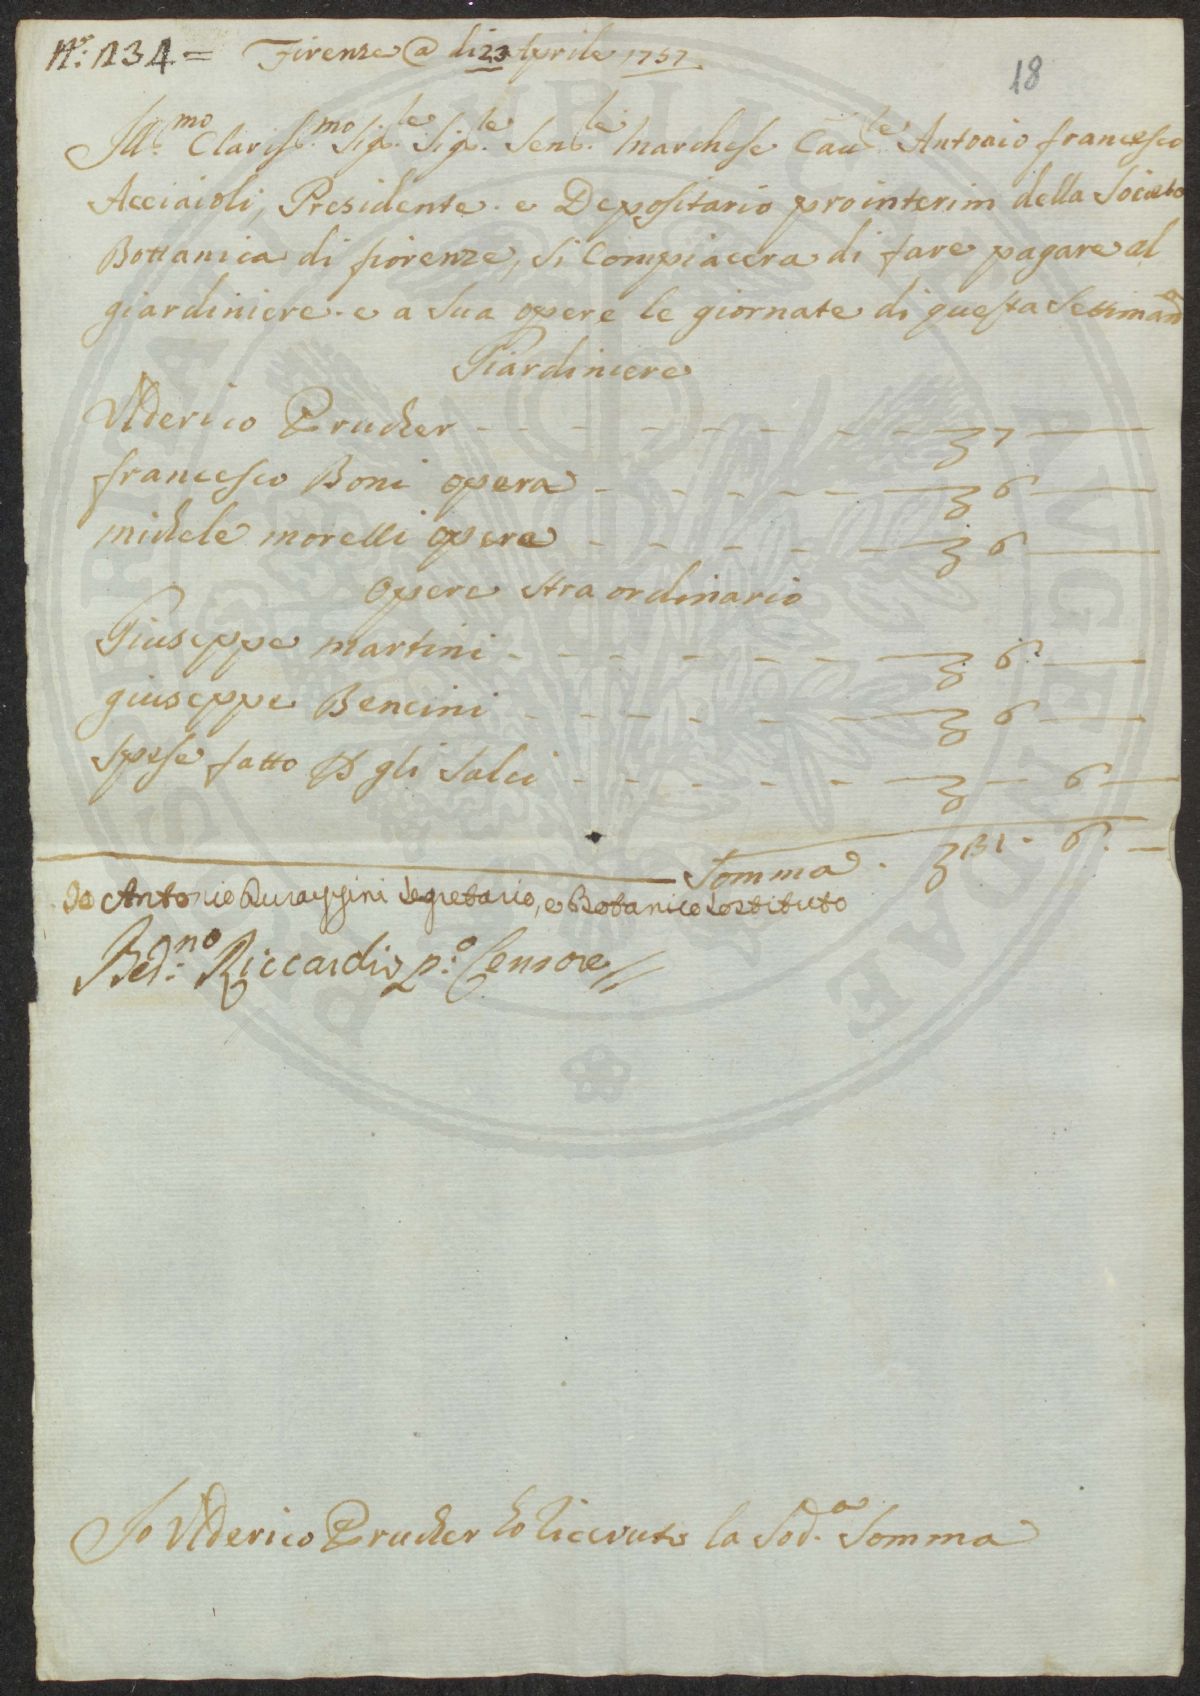 N.º 134 = Firenze @ di 23 Aprile 1757
18
Ill.mo Clariss.mo Sig.le Sig.le Sen.le Marchese Cau.le Antonio francesco
Acciaioli, Presidente e Depositario prointerim della Societa
Bottanica di fiorenze, si Compiacera di fare pagare al
giardiniere e a sua opere le giornate di questa Settimana
Giardiniere
Ulderico Prucker - - - - - - - - 7 —
francesco Boni opera - - - - - - 6 —
michele morelli opera - - - - - - 6 —
opere straordinario
Giuseppe martini - - - - - - - 6 —
giuseppe Bencini - - - - - - - 6 —
spese fatto P gli Salci - - - - - - — 6 —
Somma - 31 - 6 —
Io Antonio Durazzini Segretario, e Botanico Sostituto
Bed.no Riccardi p.º Censore
Io Ulderico Prucker ho ricevuto la Sod.a Somma
PUBLICAE
SPERNAT
AVGENDAE